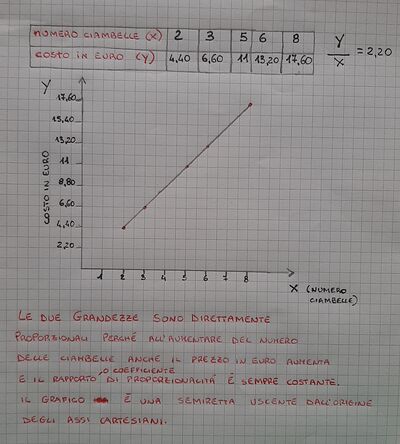 NUMERO CIAMBELLE (X) 2 3 5 6 8
COSTO IN EURO (Y) 4,40 6,60 11 13,20 17,60
Y/X = 2,20
Y
17,60
15,40
13,20
11
8,80
6,60
4,40
2,20
COSTO IN EURO
1 2 3 4 5 6 7 8
X (NUMERO
CIAMBELLE)
LE DUE GRANDEZZE SONO DIRETTAMENTE
PROPORZIONALI PERCHÉ ALL'AUMENTARE DEL NUMERO
DELLE CIAMBELLE ANCHE IL PREZZO IN EURO AUMENTA
O COEFFICIENTE
E IL RAPPORTO DI PROPORZIONALITÁ É SEMPRE COSTANTE.
IL GRAFICO É UNA SEMIRETTA USCENTE DALL'ORIGINE
DEGLI ASSI CARTESIANI.